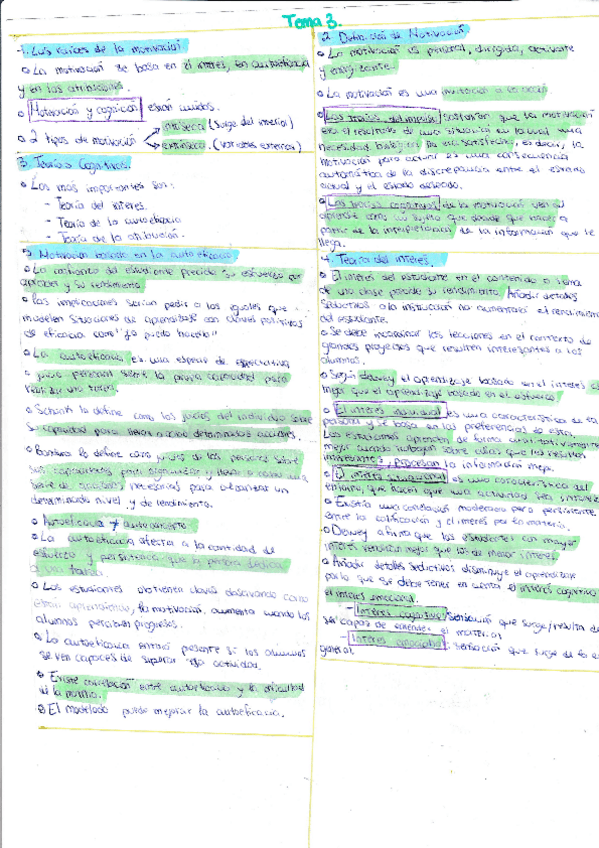 Tema 3.
1. Las raíces de la motivación.
• La motivación se basa en el interés, en autoeficacia
y en las atribuciones.
• Motivación y cognición están unidos.
• 2 tipos de motivación
intrínseca (surge del interior)
extrínseca. (variables externas)
3. Teorías Cognitivas.
• Las más importantes son:
- Teoría del interés.
- Teoría de la autoeficacia
- Teoría de la atribución.
5 Motivación basada en la autoeficacia
• La autoeficacia del estudiante predice su esfuerzo por
aprender y su rendimiento
• Las implicaciones serían pedir a los iguales que
modelen situaciones de aprendizaje con claves positivas
de eficacia como "yo puedo hacerlo"
• La autoeficacia es una especie de expectativa
o juicio personal sobre la propia capacidad para
realizar una tarea.
• Schunk la define como los juicios del individuo sobre
su capacidad para llevar a cabo determinadas acciones.
• Bandura la define como juicios de las personas sobre
sus capacidades para organizar y llevar a cabo una
serie de acciones necesarias para alcanzar un
determinado nivel de rendimiento.
• Autoeficacia ≠ autoconcepto
• La autoeficacia afecta a la cantidad de
esfuerzo y persistencia que la persona dedica
a una tarea.
• Los estudiantes obtienen claves observando cómo
están aprendiendo, la motivación aumenta cuando los
alumnos perciben progresos.
• La autoeficacia estará presente si los alumnos
se ven capaces de superar actividad.
• Existe correlación entre autoeficacia y la dificultad
de la misma.
• El modelado puede mejorar la autoeficacia.
2. Definición de Motivación
• La motivación es personal, dirigida, activante
y energizante.
• La motivación es una invitación a la acción
• Las teorías del impulso sostienen que la motivación
era el resultado de una situación en la cual una
necesidad biológica no era satisfecha, es decir, la
motivación para actuar es una consecuencia
automática de la discrepancia entre el estado
actual y el estado deseado.
• Las teorías cognitivas de la motivación ven al
aprendiz como un sujeto que decide que hacer a
partir de la interpretación de la información que le
llega.
4. Teoría del interés.
• El interés del estudiante en el contenido o tema
de una clase predice su rendimiento. Añadir detalles
seductivos a la instrucción no aumentará el rendimiento
del estudiante.
• Se debe incorporar las lecciones en el contexto de
grandes proyectos que resulten interesantes a los
alumnos.
• Según Dewey el aprendizaje basado en el interés es
mejor que el aprendizaje basado en el esfuerzo.
• El interés individual es una característica de la
persona y se basa en las preferencias de esta.
Los estudiantes aprenden de forma cualitativamente
mejor cuando trabajan sobre cosas que les resultan
interesantes, procesan la información mejor.
• El interés situacional es una característica del
entorno, que hacen que una actividad sea
• Existía una correlación moderada pero persistente
entre la calificación y el interés por la materia.
• Dewey afirma que los estudiantes con mayor
interés rendirán mejor que los de menor interés.
• Añadir detalles seductivos disminuye el aprendizaje
por lo que se debe tener en cuenta el interés cognitivo
el interés emocional.
- Interés cognitivo: sensación que surge/resulta de
ser capaz de entender el material
- Interés emocional: sensación que surge de la
general.